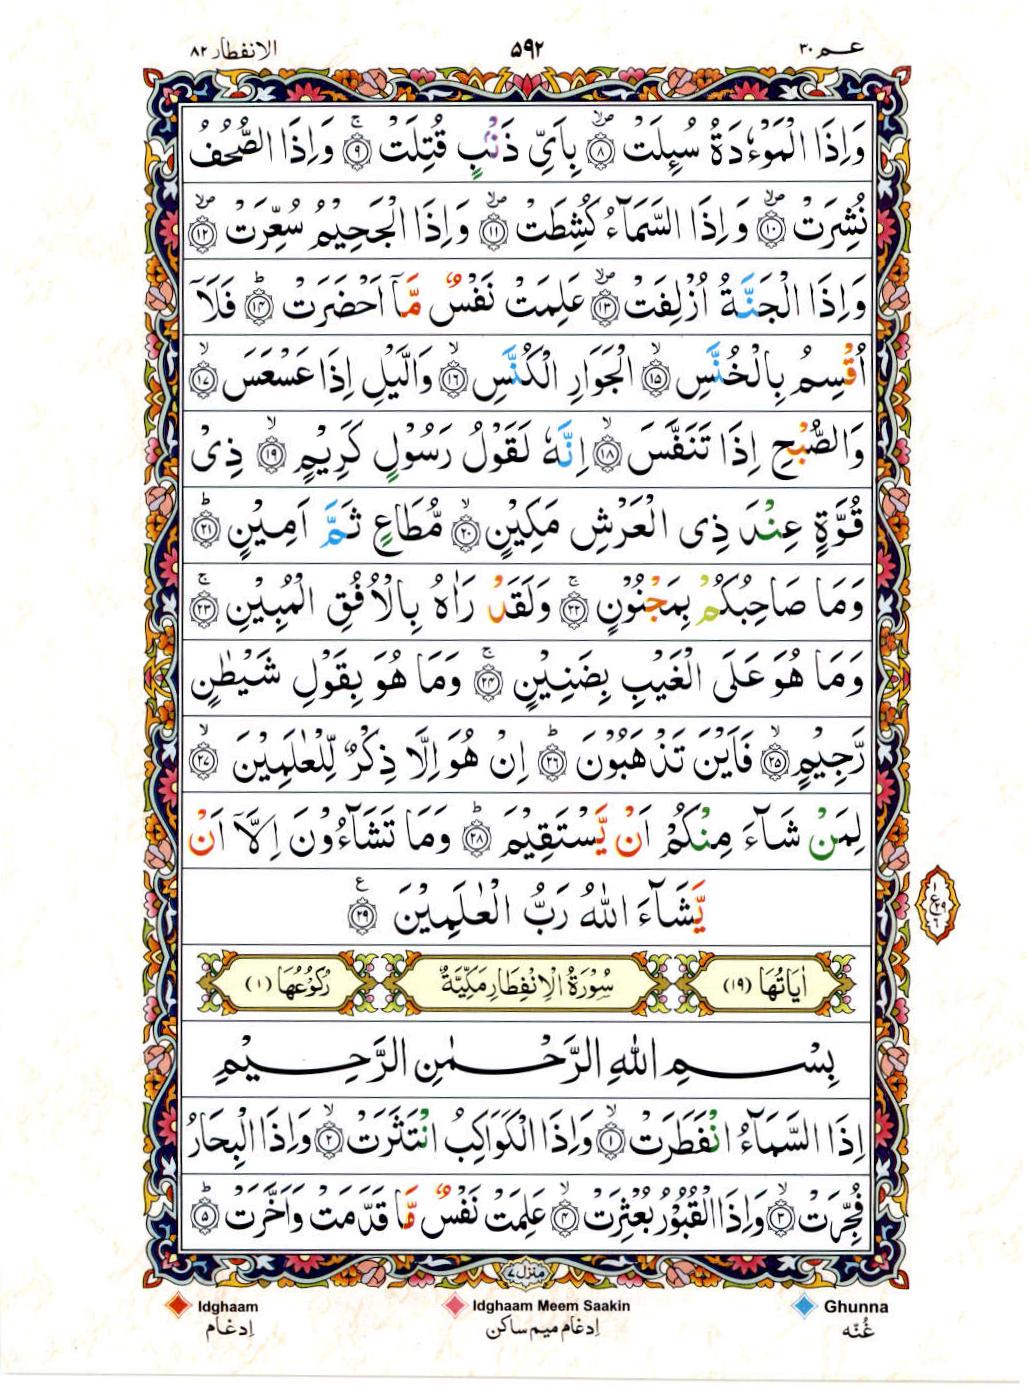 عم ۳۰ ۵۹۲ الانفطار ۸۲
وَاِذَا الْمَوْءٗدَةُ سُىِٕلَتْ ۪ۙ‏﴿۸﴾ بِاَىِّ ذَنْۢبٍ قُتِلَتْ‌ۚ‏﴿۹﴾ وَاِذَا الصُّحُفُ
نُشِرَتْ ۪ۙ‏﴿۱۰﴾ وَاِذَا السَّمَآءُ كُشِطَتْ ۪ۙ‏﴿۱۱﴾ وَاِذَا الْجَحِيْمُ سُعِّرَتْ ۪ۙ‏﴿۱۲﴾
وَاِذَا الْجَنَّةُ اُزْلِفَتْ ۪ۙ‏﴿۱۳﴾ عَلِمَتْ نَفْسٌ مَّاۤ اَحْضَرَتْؕ‏﴿۱۴﴾ فَلَاۤ
اُقْسِمُ بِالْخُنَّسِۙ‏﴿۱۵﴾ الْجَوَارِ الْكُنَّسِۙ‏﴿۱۶﴾ وَالَّيْلِ اِذَا عَسْعَسَۙ‏﴿۱۷﴾
وَالصُّبْحِ اِذَا تَنَفَّسَۙ‏﴿۱۸﴾ اِنَّهٗ لَقَوْلُ رَسُوْلٍ كَرِيْمٍۙ‏﴿۱۹﴾ ذِىْ
قُوَّةٍ عِنْدَ ذِى الْعَرْشِ مَكِيْنٍۙ‏﴿۲۰﴾ مُّطَاعٍ ثَمَّ اَمِيْنٍؕ‏﴿۲۱﴾
وَمَا صَاحِبُكُمْ بِمَجْنُوْنٍ‌ۚ‏﴿۲۲﴾ وَلَقَدْ رَاٰهُ بِالْاُفُقِ الْمُبِيْنِ‌ۚ‏﴿۲۳﴾
وَمَا هُوَ عَلَى الْغَيْبِ بِضَنِيْنٍ‌ۚ‏﴿۲۴﴾ وَمَا هُوَ بِقَوْلِ شَيْطٰنٍ
رَّجِيْمٍۙ‏﴿۲۵﴾ فَاَيْنَ تَذْهَبُوْنَؕ‏﴿۲۶﴾ اِنْ هُوَ اِلَّا ذِكْرٌ لِّلْعٰلَمِيْنَۙ‏﴿۲۷﴾
لِمَنْ شَآءَ مِنْكُمْ اَنْ يَّسْتَقِيْمَؕ‏﴿۲۸﴾ وَمَا تَشَآءُوْنَ اِلَّاۤ اَنْ
يَّشَآءَ اللّٰهُ رَبُّ الْعٰلَمِيْنَ‏﴿۲۹﴾ ع
اٰيَاتُهَا (۱۹) سُوْرَةُ الْاِنْفِطَارِ مَكِّيَّةٌ رُكُوْعُهَا (۱)
بِسْمِ اللّٰهِ الرَّحْمٰنِ الرَّحِيْمِ
اِذَا السَّمَآءُ انْفَطَرَتْۙ‏﴿۱﴾ وَاِذَا الْكَوَاكِبُ انْتَثَرَتْۙ‏﴿۲﴾ وَاِذَا الْبِحَارُ
فُجِّرَتْۙ‏﴿۳﴾ وَاِذَا الْقُبُوْرُ بُعْثِرَتْۙ‏﴿۴﴾ عَلِمَتْ نَفْسٌ مَّا قَدَّمَتْ وَاَخَّرَتْؕ‏﴿۵﴾
منزل ۷
Idghaam Idghaam Meem Saakin Ghunna
اِدغام اِدغام میم ساکن غُنّه